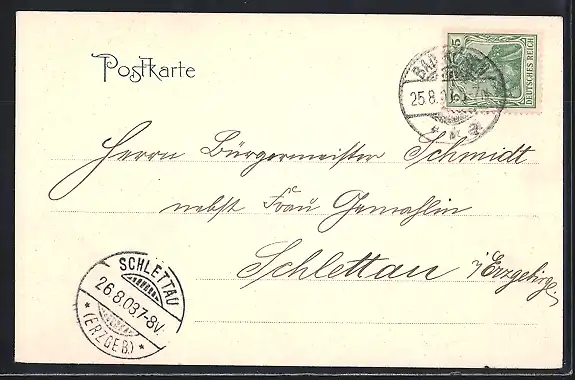 Postkarte
5
DEUTSCHES REICH
BAD
25.8.
Herrn Bürgermeister Schmidt
nebst Frau Gemahlin
Schlettau i/Erzgebirge.
SCHLETTAU
26.8.03.7-8V.
* (ERZGEB.) *